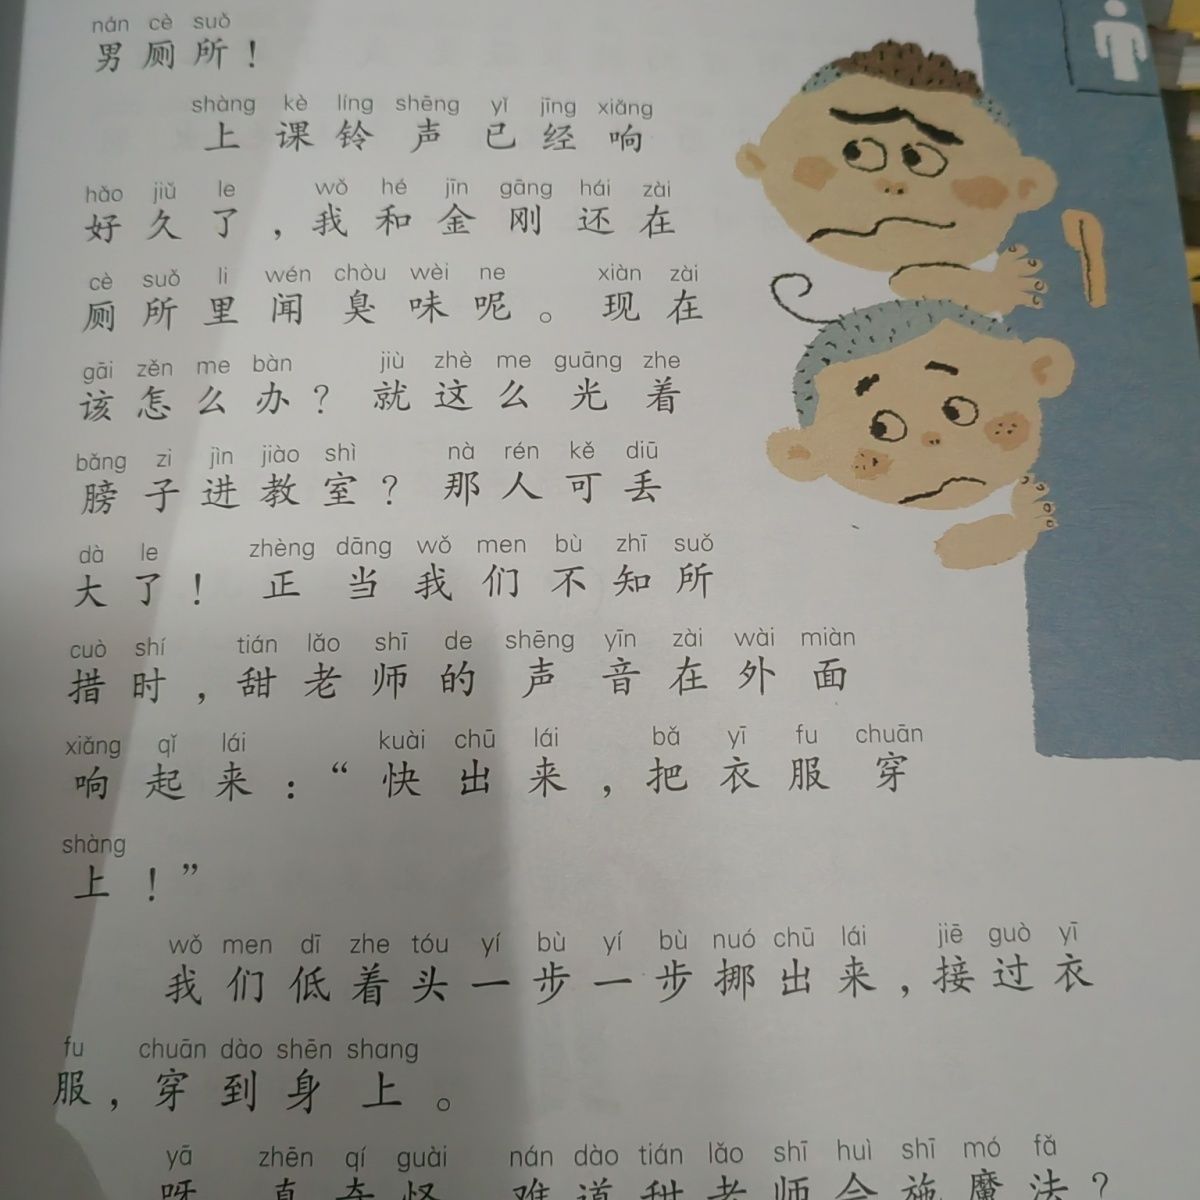 nán cè suǒ
男厕所！
shàng kè líng shēng yǐ jīng xiǎng
上课铃声已经响
hǎo jiǔ le wǒ hé jīn gāng hái zài
好久了，我和金刚还在
cè suǒ li wén chòu wèi ne xiàn zài
厕所里闻臭味呢。现在
gāi zěn me bàn jiù zhè me guāng zhe
该怎么办？就这么光着
bǎng zi jìn jiào shì nà rén kě diū
膀子进教室？那人可丢
dà le zhèng dāng wǒ men bù zhī suǒ
大了！正当我们不知所
cuò shí tián lǎo shī de shēng yīn zài wài miàn
措时，甜老师的声音在外面
xiǎng qǐ lái kuài chū lái bǎ yī fu chuān
响起来：“快出来，把衣服穿
shàng
上！”
wǒ men dī zhe tóu yí bù yí bù nuó chū lái jiē guò yī
我们低着头一步一步挪出来，接过衣
fu chuān dào shēn shang
服，穿到身上。
yā zhēn qí guài nán dào tián lǎo shī huì shī mó fǎ
呀，真奇怪，难道甜老师会施魔法？